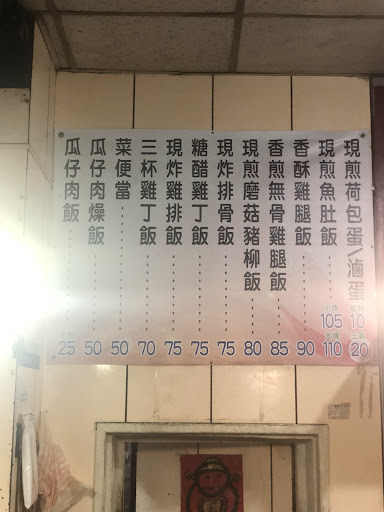 現煎荷包蛋/滷蛋 10 20
現煎魚肚飯 小塊 105 大塊 110
香酥雞腿飯 90
香煎無骨雞腿飯 85
現煎磨菇豬柳飯 80
現炸排骨飯 75
糖醋雞丁飯 75
現炸雞排飯 75
三杯雞丁飯 70
菜便當 50
瓜仔肉燥飯 50
瓜仔肉飯 25